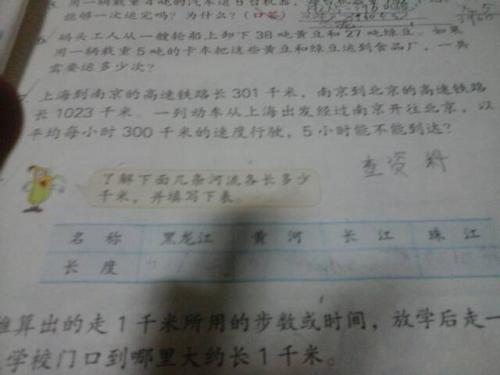 用一辆载重4吨的汽车运
能够一次运完吗？为什么？（口答）
码头工人从一艘轮船上卸下38吨黄豆和27吨绿豆。如果
用一辆载重5吨的卡车把这些黄豆和绿豆运到食品厂，一共
需要运多少次？
上海到南京的高速铁路长301千米，南京到北京的高速铁路
长1023千米。一列动车从上海出发经过南京开往北京，以
平均每小时300千米的速度行驶，5小时能不能到达？
查资料
了解下面几条河流各长多少
千米，并填写下表。
名 称 黑龙江 黄 河 长 江 珠 江
长 度
算出的走1千米所用的步数或时间，放学后走一
学校门口到哪里大约长1千米。